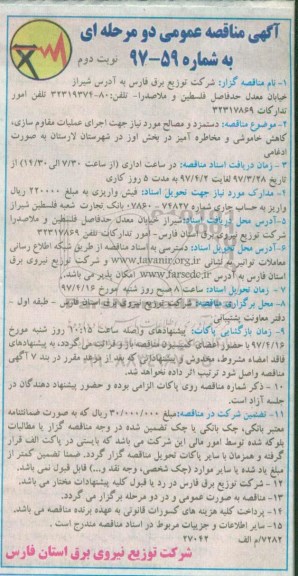 آگهی مناقصه عمومی دو مرحله ای
به شماره ۵۹-۹۷
نوبت دوم
۱- نام مناقصه گزار: شرکت توزیع برق فارس به آدرس شیراز
خیابان معدل حدفاصل فلسطین و ملاصدرا- تلفن: ۸۰-۳۲۳۱۹۳۷۴ تلفن امور
تدارکات ۳۲۳۱۷۸۶۹
۲- موضوع مناقصه: دستمزد و مصالح مورد نیاز جهت اجرای عملیات مقاوم سازی،
کاهش خاموشی و مخاطره آمیز در بخش اوز در شهرستان لارستان به صورت
ادغامی
۳- زمان دریافت اسناد مناقصه: در ساعت اداری (از ساعت ۷/۳۰ الی ۱۴/۳۰) از
تاریخ ۹۷/۳/۲۸ لغایت ۹۷/۴/۲ به مدت ۵ روز کاری
۴- مدارک مورد نیاز جهت تحویل اسناد: فیش واریزی به مبلغ ۲۲۰۰۰۰ ریال
واریز به حساب جاری شماره ۷۴۸۲۷-۰۷۸۶۰ بانک تجارت شعبه فلسطین شیراز
۵- آدرس محل دریافت اسناد: شیراز خیابان معدل حدفاصل فلسطین و ملاصدرا
شرکت توزیع نیروی برق استان فارس - امور تدارکات تلفن ۳۲۳۱۷۸۶۹
۶- آدرس محل تحویل اسناد: دسترسی به اسناد مناقصه از طریق شبکه اطلاع رسانی
معاملات توانیر به نشانی www.tavanir.org.ir و شرکت توزیع نیروی برق
استان فارس به آدرس www.farsedc.ir امکان پذیر می باشد.
۷- زمان تحویل اسناد: ساعت ۸ صبح روز شنبه مورخ ۹۷/۴/۱۶
۸- محل برگزاری مناقصه: شرکت توزیع نیروی برق استان فارس - طبقه اول -
دفتر معاونت پشتیبانی
۹- زمان بازگشایی پاکات: پیشنهادهای واصله ساعت ۱۰:۱۵ روز شنبه مورخ
۹۷/۴/۱۶ با حضور اعضای کمیسیون مناقصه باز و قرائت می گردد، به پیشنهادهای
فاقد امضاء مشروط، مخدوش و پیشنهاداتی که بعد از موعد مقرر در بند ۷ آگهی
مناقصه واصل شود ترتیب اثر داده نخواهد شد.
۱۰- ذکر شماره مناقصه روی پاکات الزامی بوده و حضور پیشنهاد دهندگان در
جلسه آزاد است.
۱۱- تضمین شرکت در مناقصه: مبلغ ۳۰/۰۰۰/۰۰۰ ریال که به صورت ضمانتنامه
معتبر بانکی، چک بانکی یا چک تضمین شده در وجه مناقصه گزار یا مطالبات
بلوکه شده توسط امور مالی این شرکت می باشد که بایستی در پاکت الف قرار
گرفته و همزمان با سایر پاکات تحویل مناقصه گزار گردد. ضمنا تضمین کمتر از
مبلغ یاد شده یا سایر موارد (چک شخصی، وجه نقد و...) قابل قبول نمی باشد.
۱۲- شرکت توزیع برق فارس در رد یا قبول کلیه پیشنهادات مختار می باشد.
۱۳- مناقصه به صورت عمومی و در دو مرحله برگزار می گردد.
۱۴- پرداخت کلیه هزینه های کسورات قانونی به عهده برنده مناقصه می باشد.
۱۵- سایر اطلاعات و جزییات مربوط در اسناد مناقصه مندرج است.
۷۲۸۲/م الف ۲۷۰۴۲
شرکت توزیع نیروی برق استان فارس